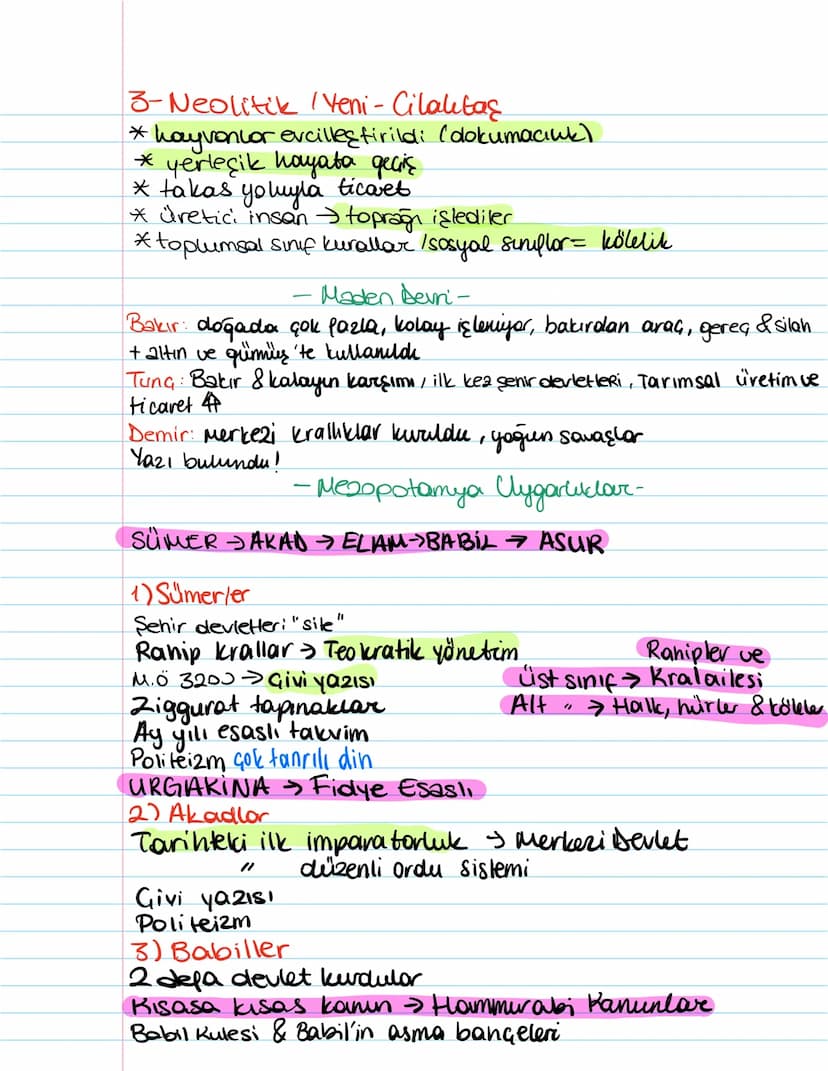 3-Neolitik / Yeni - Cilalıtaş
* hayvanlar evcilleştirildi (dokumacılık)
* yerleşik hayata geçiş
* takas yoluyla ticaret
* üretici insan → toprağı işlediler
* toplumsal sınıf kurallar / sosyal sınıflar = kölelik
- Maden Devri -
Bakır: doğada çok fazla, kolay işleniyor, bakırdan araç, gereç & silah
+ altın ve gümüş'te kullanıldı
Tunç: Bakır & kalayın karışımı, ilk kez şehir devletleri, Tarımsal üretim ve
ticaret ⇑
Demir: Merkezi krallıklar kuruldu, yoğun savaşlar
Yazı bulundu!
- Mezopotamya Uygarlıkları -
SÜMER → AKAD → ELAM → BABİL → ASUR
1) Sümerler
Şehir devletleri "site"
Rahip krallar → Teokratik yönetim
M.Ö 3200 → Çivi yazısı
Ziggurat tapınakları
Ay yılı esaslı takvim
Politeizm çok tanrılı din
URGAKİNA → Fidye Esaslı
Rahipler ve
Üst sınıf → Kral ailesi
Alt " → Halk, hürler & köleler
2) Akadlar
Tarihteki ilk imparatorluk → Merkezi Devlet
" düzenli ordu sistemi
Çivi yazısı
Politeizm
3) Babiller
2 defa devlet kurdular
Kısasa kısas kanun → Hammurabi Kanunları
Babil Kulesi & Babil'in asma bahçeleri